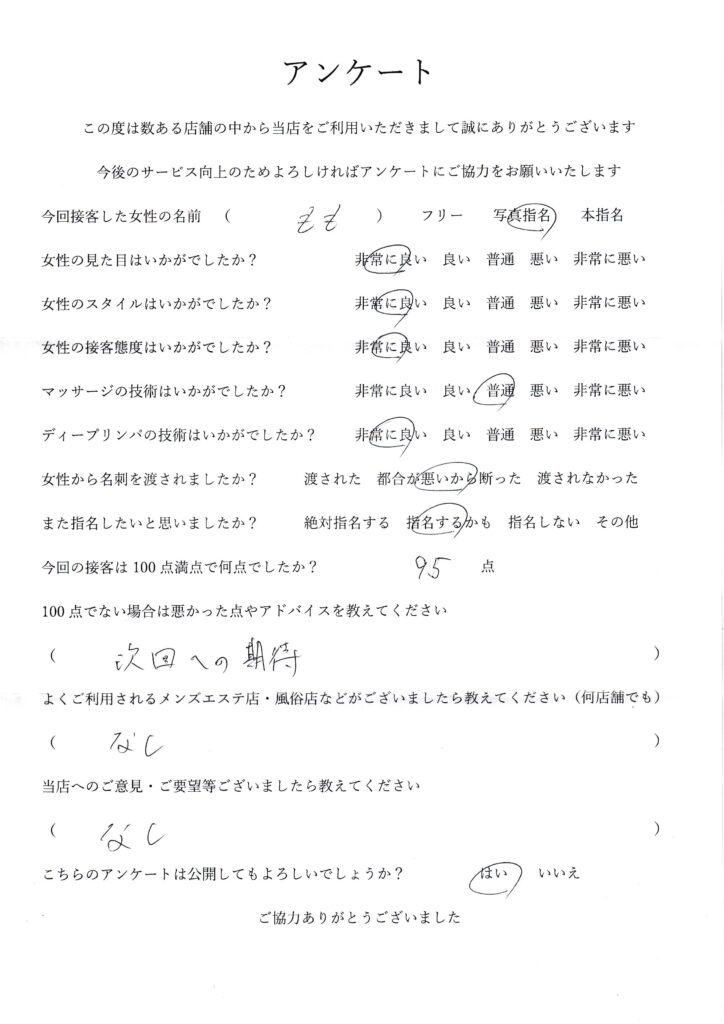 アンケート
この度は数ある店舗の中から当店をご利用いただきまして誠にありがとうございます
今後のサービス向上のためよろしければアンケートにご協力をお願いいたします
今回接客した女性の名前 ( もも ) フリー 写真指名 本指名
女性の見た目はいかがでしたか? 非常に良い 良い 普通 悪い 非常に悪い
女性のスタイルはいかがでしたか? 非常に良い 良い 普通 悪い 非常に悪い
女性の接客態度はいかがでしたか? 非常に良い 良い 普通 悪い 非常に悪い
マッサージの技術はいかがでしたか? 非常に良い 良い 普通 悪い 非常に悪い
ディープリンパの技術はいかがでしたか? 非常に良い 良い 普通 悪い 非常に悪い
女性から名刺を渡されましたか? 渡された 都合が悪いから断った 渡されなかった
また指名したいと思いましたか? 絶対指名する 指名するかも 指名しない その他
今回の接客は100点満点で何点でしたか? 95 点
100点でない場合は悪かった点やアドバイスを教えてください
( 次回への期待 )
よくご利用されるメンズエステ店・風俗店などがございましたら教えてください(何店舗でも)
( なし )
当店へのご意見・ご要望等ございましたら教えてください
( なし )
こちらのアンケートは公開してもよろしいでしょうか? はい いいえ
ご協力ありがとうございました